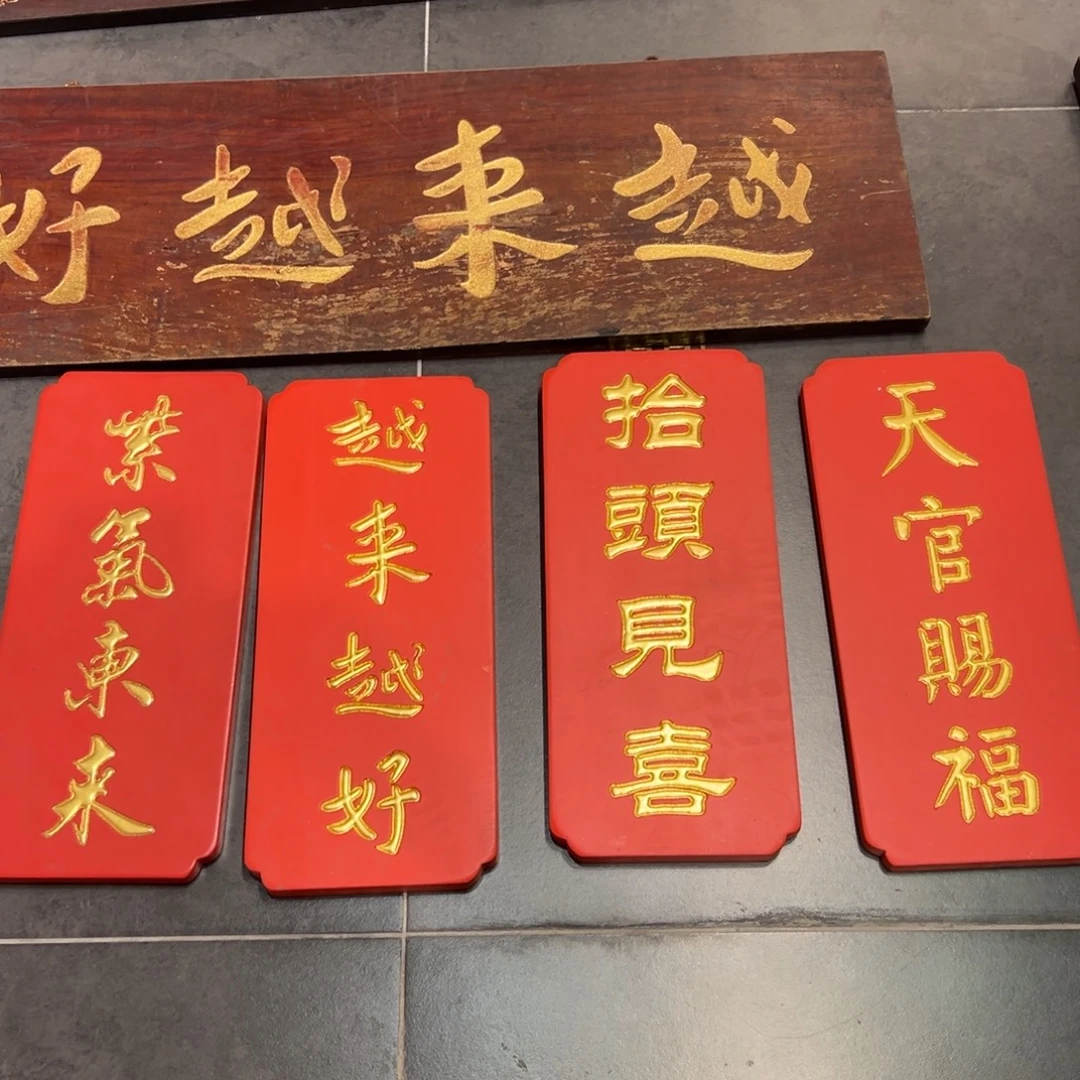 越来越好
天官賜福
拾頭見喜
越来越好
紫氣東来